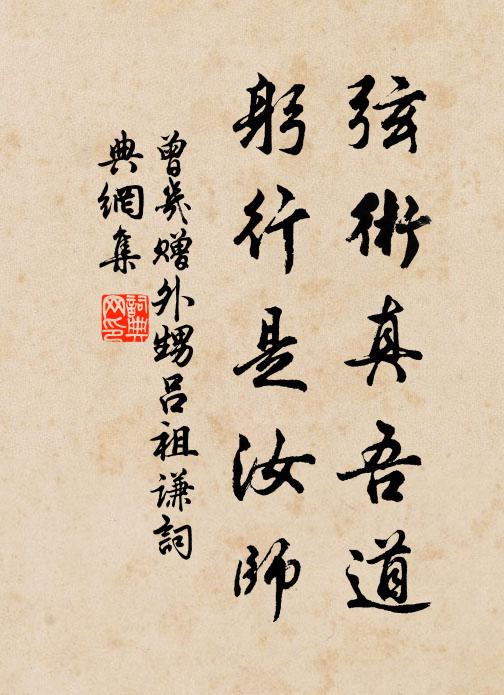 弦術真吾道
躬行是汝師
曾幾贈外甥呂祖謙詞
典網集
詞典網印